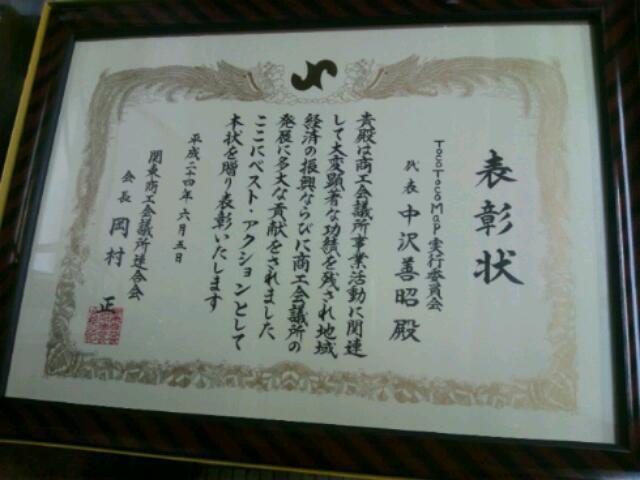 表彰状
TocoTocoMap実行委員会
代表 中沢善昭殿
貴殿は商工会議所事業活動に関連
して大変顕著な功績を残され地域
経済の振興ならびに商工会議所の
発展に多大な貢献をされました
ここにベスト・アクションとして
本状を贈り表彰いたします
平成二十四年六月五日
関東商工会議所連合会
会長 岡村 正